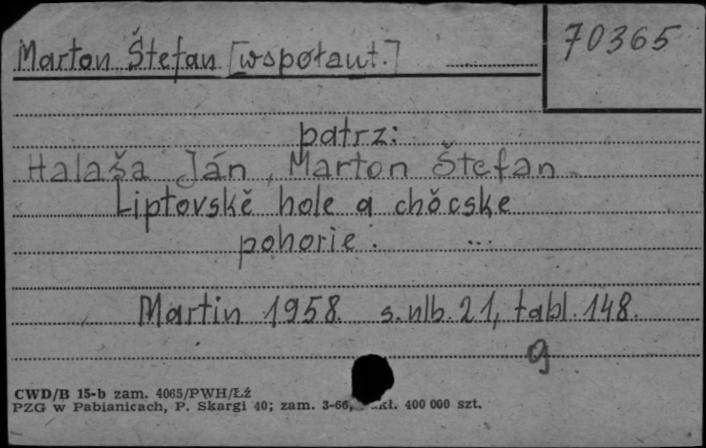 70365
Marton Štefan [współaut.]
patrz:
Halaša Ján, Marton Štefan
Liptovskě hole a chǒcske
pohorie. ...
Martin 1958. s. nlb. 21, tabl. 148.
g
CWD/B 15-b zam. 4065/PWH/Łź
PZG w Pabianicach, P. Skargi 40; zam. 3-66, kł. 400 000 szt.